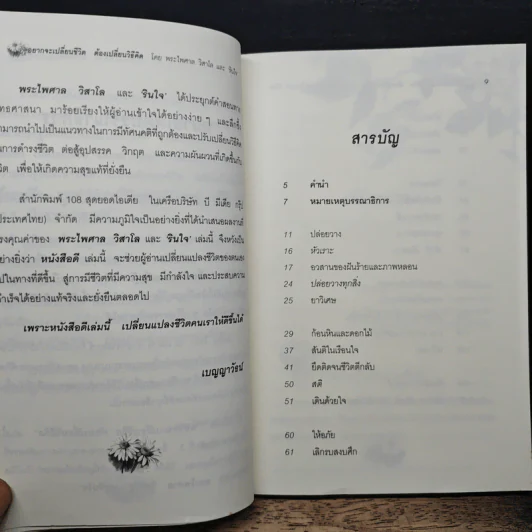 อยากจะเปลี่ยนชีวิต ต้องเปลี่ยนวิธีคิด โดย พระไพศาล วิสาโล และ รินใจ
พระไพศาล วิสาโล และ รินใจ' ได้ประยุกต์คำสอนทาง
ทธศาสนา มาร้อยเรียงให้ผู้อ่านเข้าใจได้อย่างง่าย ๆ และลึกซึ้ง
ามารถนำไปเป็นแนวทางในการมีทัศนคติที่ถูกต้องและปรับเปลี่ยนวิธีคิด
การดำรงชีวิต ต่อสู้อุปสรรค วิกฤต และความผันผวนที่เกิดขึ้นกับ
เพื่อให้เกิดความสุขแท้ที่ยั่งยืน
สำนักพิมพ์ 108 สุดยอดไอเดีย ในเครือบริษัท บี มีเดีย กรุ๊ป
ประเทศไทย) จำกัด มีความภูมิใจเป็นอย่างยิ่งที่ได้นำเสนอผลงานอัน
รงคุณค่าของ พระไพศาล วิสาโล และ รินใจ' เล่มนี้ จึงหวังเป็น
ย่างยิ่งว่า หนังสือดี เล่มนี้ จะช่วยผู้อ่านเปลี่ยนแปลงชีวิตของตนเอง
ปในทางที่ดีขึ้น สู่การมีชีวิตที่มีความสุข มีกำลังใจ และประสบความ
ำเร็จได้อย่างแท้จริงและยั่งยืนตลอดไป
เพราะหนังสือดีเล่มนี้ เปลี่ยนแปลงชีวิตคนเราให้ดีขึ้นได้
เบญญาวัธน์
9
สารบัญ
5 คำนำ
7 หมายเหตุบรรณาธิการ
11 ปล่อยวาง
16 หัวเราะ
17 อวสานของฝันร้ายและภาพหลอน
24 ปล่อยวางทุกสิ่ง
25 ยาวิเศษ
29 ก้อนหินและดอกไม้
37 สันติในเรือนใจ
41 ยึดติดจนชีวิตตีกลับ
50 สติ
51 เดินด้วยใจ
60 ให้อภัย
61 เลิกรบสงบศึก